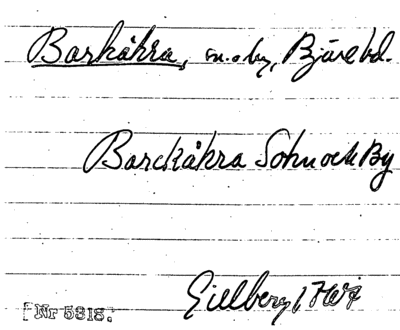 Barkåkra, sn. o by, Bjäre hd.
Barckåkra Sohn och By
Gillberg 1767
[Nr 5818.]